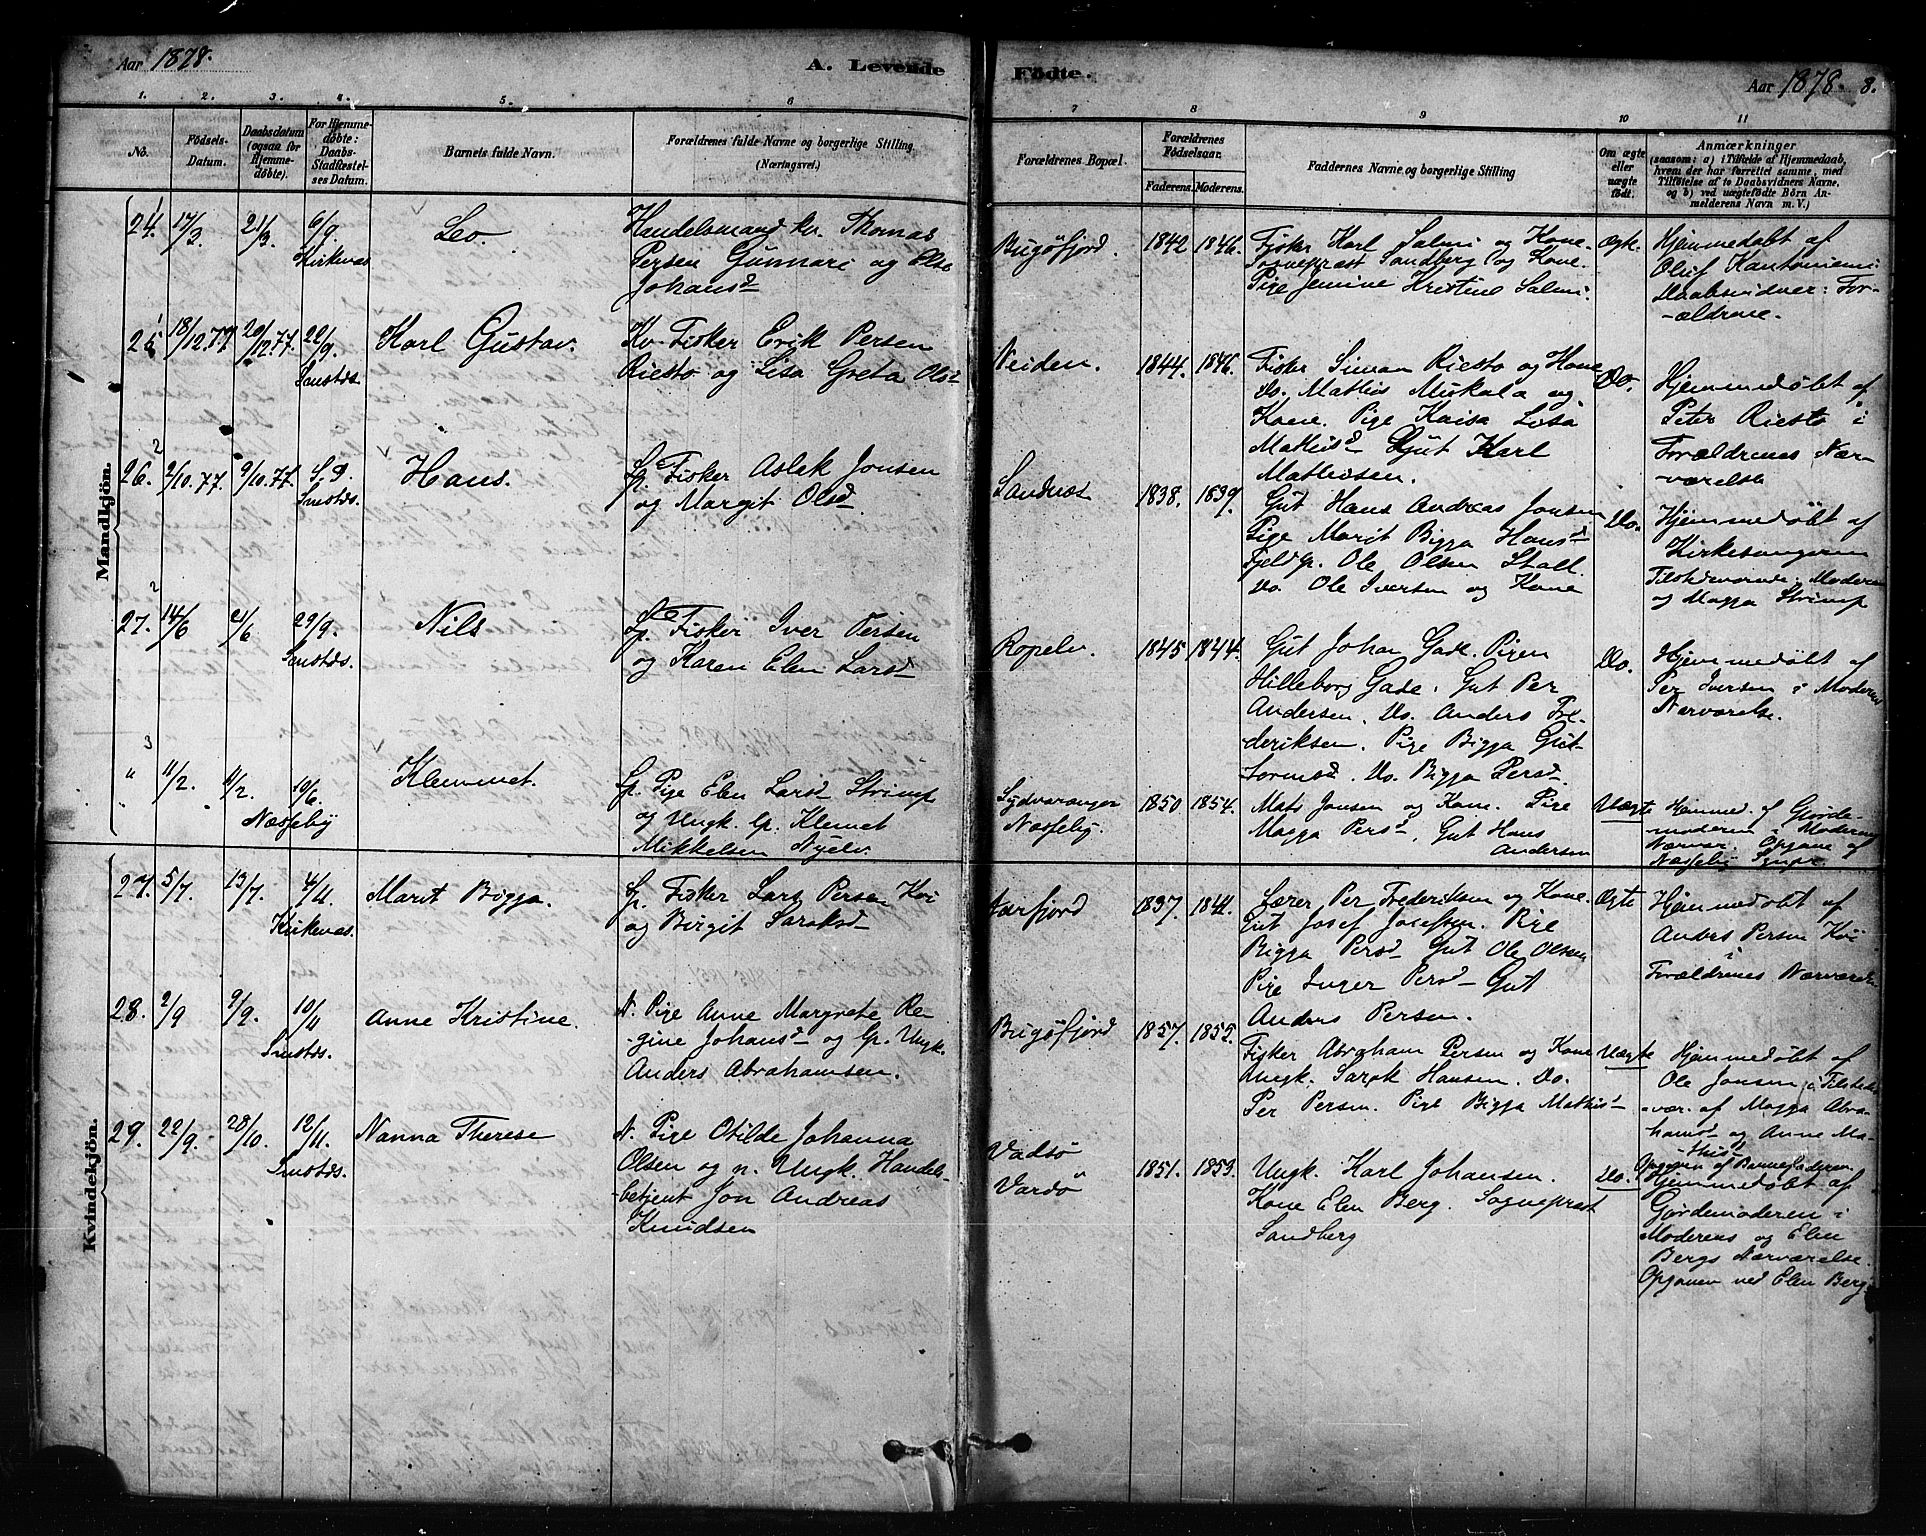 Aar 1878.
A. Levende
1. 2. 3. 4. 5. 6
No.
Födsels-
Datum.
Daabsdatum
(ogsaa for
Hjemme-
döbte).
For Hjemme-
döbte:
Daabs-
Stadfæstel-
ses Datum.
Barnets fulde Navn.
Forældrenes fulde Navne og borgerlige Stilling
(Næringsvei.)
Mandkjön.
24. 17/3 21/3. 6/9. Leo.
Kirkenæs
Handelsmand kv. Thomas
Persen Gunnari og Else
Johansd
25 18/12.77 20/12.77. 22/9. Karl Gustav.
Sammestds.
Kv. Fisker Erik Persen
Riesto og Lisa Greta Olsd
26. 2/10.77. 9/10.77. S. D. Hans.
Smstds.
Lp. Fisker Aslak Jonsen
og Margit Olsd.
27. 14/6 21/6 29/9. Nils
Smstds.
Lp. Fisker Iver Persen
og Karen Elen Larsd
" 11/2. 11/2. 10/6. Klemmet.
Næsseby
Lp. Pige Elen Larsd Strimp
og Ungk. lp. Klemet
Mikkelsen Nyelv.
Kvindekjön.
27. 5/7. 13/7. 4/11. Marit Bigga.
Kirkenæs.
Lp. Fisker Lars Persen Koi
og Birgit Saraksd
28. 2/9 9/9. 10/11 Anne Kristine.
Smstds.
N. Pige Anne Margrete Re-
gine Johansd og lp. Ungk.
Anders Abrahamsen.
29. 22/9. 28/10. 12/11. Nanna Therese
Smstds.
N. Pige Otilde Johanna
Olsen og n. Ungk. Handels-
betjent Jon Andreas
Knudsen
Födte.
Aar 1878. 8.
7 8 9 10 11
Forældrenes Bopæl.
Forældrenes
Födselsaar.
Faderens. Moderens.
Faddernes Navne og borgerlige Stilling
Om ægte
eller
uægte
födt.
Anmærkninger
(saasom: a) i Tilfælde af Hjemmedaab,
hvem der har forrettet samme, med
Tilföielse af to Daabsvidners Navne,
og b) ved uægtefödte Börn An-
melderens Navn m. V.)
Bugöfjord. 1842 1846.
Fisker Karl Salmi og Kone.
Sognepræst Sandberg og Kone.
Pige Jemine Kristine Salmi.
Ægte.
Hjemmedøbt af
Oluf Kantoniemi
Daabsvidner: For-
-ældrene.
Neiden. 1844. 1846.
Fisker Siman Riesto og Kone
Do. Mathis Mukala og
Kone. Pige Kaisa Lisa
Mathisd Gut Karl
Mathisen.
Do.
Hjemmedøbt af
Peter Riesto i
Forældrenes Nær-
værelse
Sandnæs 1838. 1839.
Gut Hans Andreas Jonsen
Pige Marit Bigga Hansd
Fjeldlp. Ole Olsen Stall.
Do. Ole Iversen og Kone
Do.
Hjemmedøbt af
Kirkesangeren
Tilstedeværende: Moderen
og Magga Strimp
Ropelv. 1845 1844.
Gut Johan Gade. Pigen
Hilleborg Gade. Gut Per
Andersen. Do. Anders Fre-
deriksen. Pige Bigga Gut-
tormsd. Do. Bigga Persd.
Do.
Hjemmedøbt af
Per Iversen i Moderens
Nærværelse.
Sydvaranger
Næsseby. 1850 1854.
Mats Jonsen og Kone. Pige
Magga Persd. Gut Hans
Andersen
Uægte
Hjemmed. af Gjorde-
moderen i Moderens
Nærvær. Opgave af
Næsseby
Jarfjord 1837. 1844.
Lærer Per Frederiksen og Kone.
Gut Josef Josefsen. Pige
Bigga Persd Gut Ole Olsen
Pige Inger Persd Gut
Anders Persen.
Ægte
Hjemmedøbt af
Anders Persen Koi
i
Forældrenes Nærværelse
Bugöfjord 1857. 1855.
Fisker Abraham Persen og Kone
Ungk. Sarak Hansen. Do.
Per Persen. Pige Bigga Mathisd
Uægte
Hjemmedøbt af
Ole Jonsen i Tilstede-
-vær. af Magga Abra-
hamsd og Anne Ma-
-thisd
Opgiven af Barnefaderen.
Vadsö
Vardö " 1851. 1853.
Ungk. Karl Johansen.
Kone Elen Berg. Sognepræst
Sandberg
Do.
Hjemmedøbt af
Gjordemoderen i
Moderens og Elen
Bergs Nærværelse.
Opgiven ved Elen Berg.